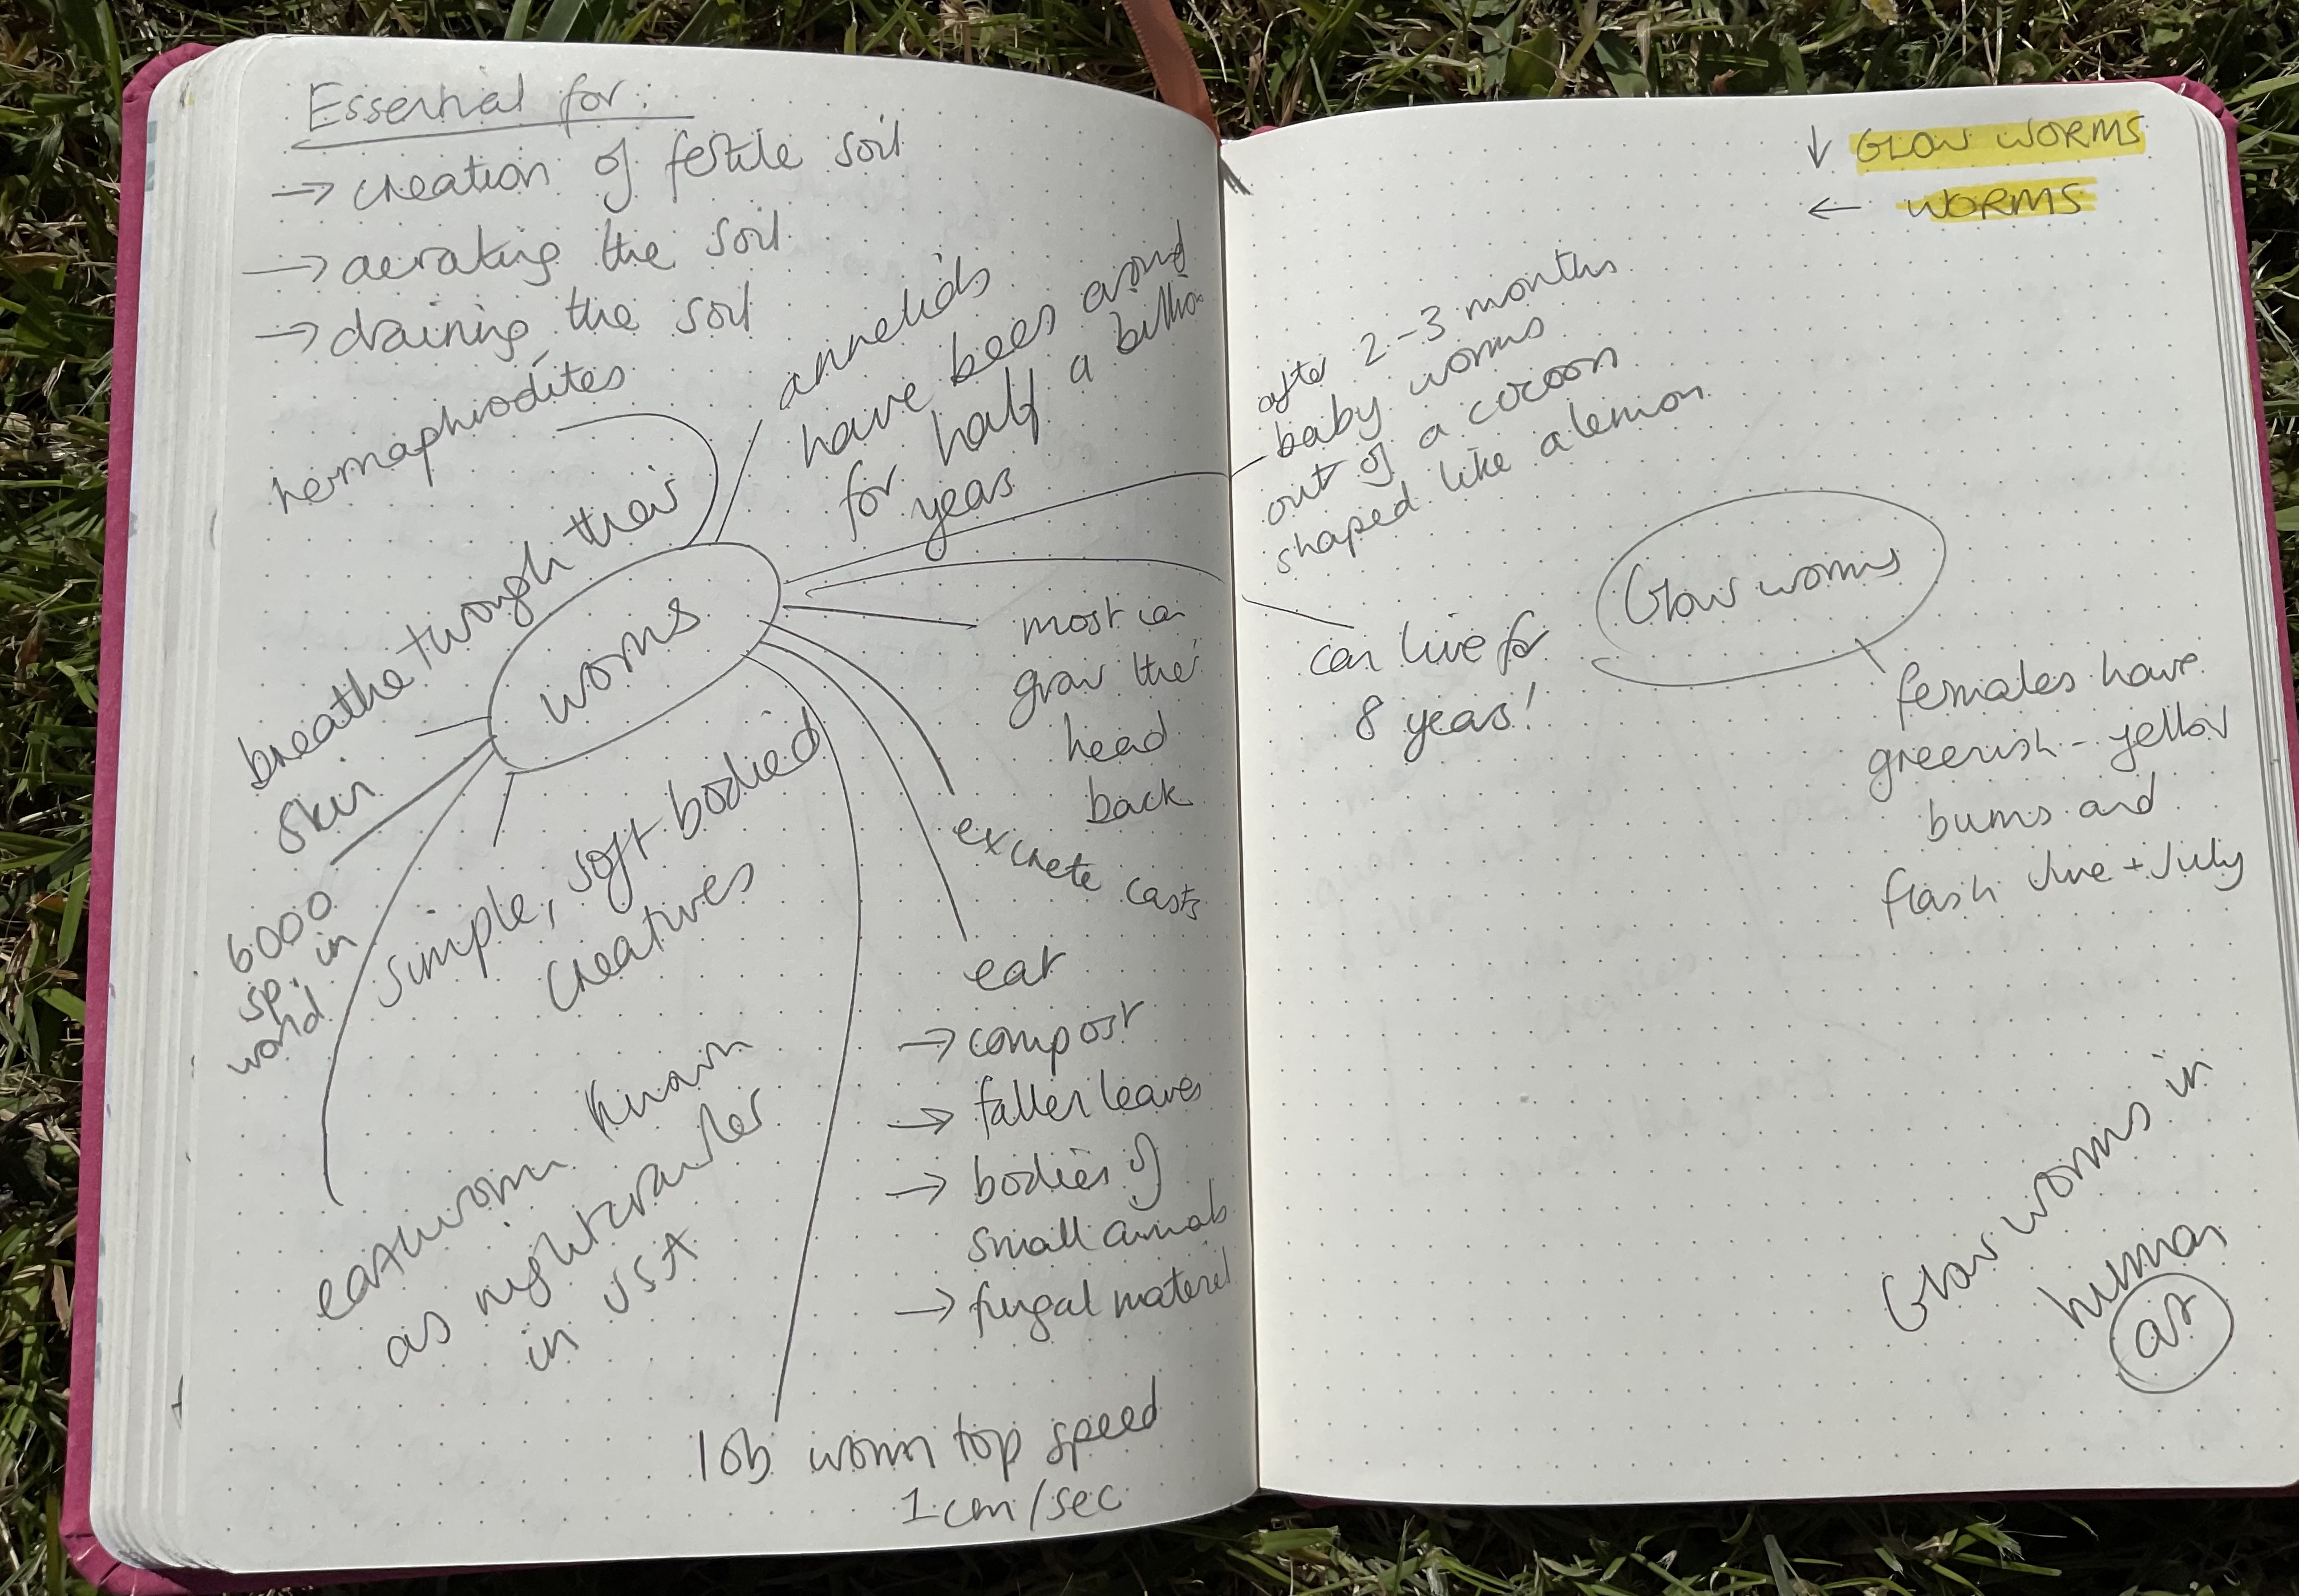 Essential for:
→ creation of fertile soil
→ aerating the soil
→ draining the soil
hermaphrodites
annelids
have bees around
for half a billion
years
breathe through their
skin
worms
6000
sp. in
world
simple, soft bodied
creatures
earthworm known
as nightcrawler
in USA
most can
grow their
head
back
excrete casts
eat
→ compost
→ fallen leaves
→ bodies of
small animals
→ fungal material
lob worm top speed
1cm/sec
↓ GLOW WORMS
← WORMS
after 2-3 months
baby worms
out of a cocoon
shaped like a lemon
can live for
8 years!
Glow worms
females have
greenish-yellow
bums and
flash June + July
Glow worms in
human